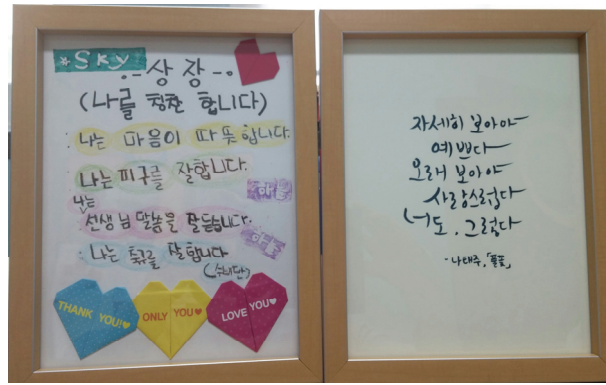 *SKY
상장
(나를 칭찬 합니다)
나는 마음이 따뜻합니다.
나는 피구를 잘합니다.
나는
선생님 말씀을 잘 듣습니다.
나는 축구를 잘 합니다
(수비만)
하늘
하늘
THANK YOU!♥
ONLY YOU♥
LOVE YOU♥
자세히 보아야
예쁘다
오래 보아야
사랑스럽다
너도, 그렇다
- 나태주, 「풀꽃」